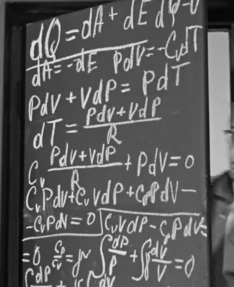 dQ = dA + dE
dA = -dE PdV = -CvdT
PdV + VdP = PdT
dT = PdV + VdP / R
Cv PdV + VdP / R + PdV = 0
CvPdV + CvVdP + CpPdV -
- CvPdV = 0 CvVdP - CpPdV =
= 0 Cp/Cv = γ ∫ dP/P + ∫ γ dV/V = 0